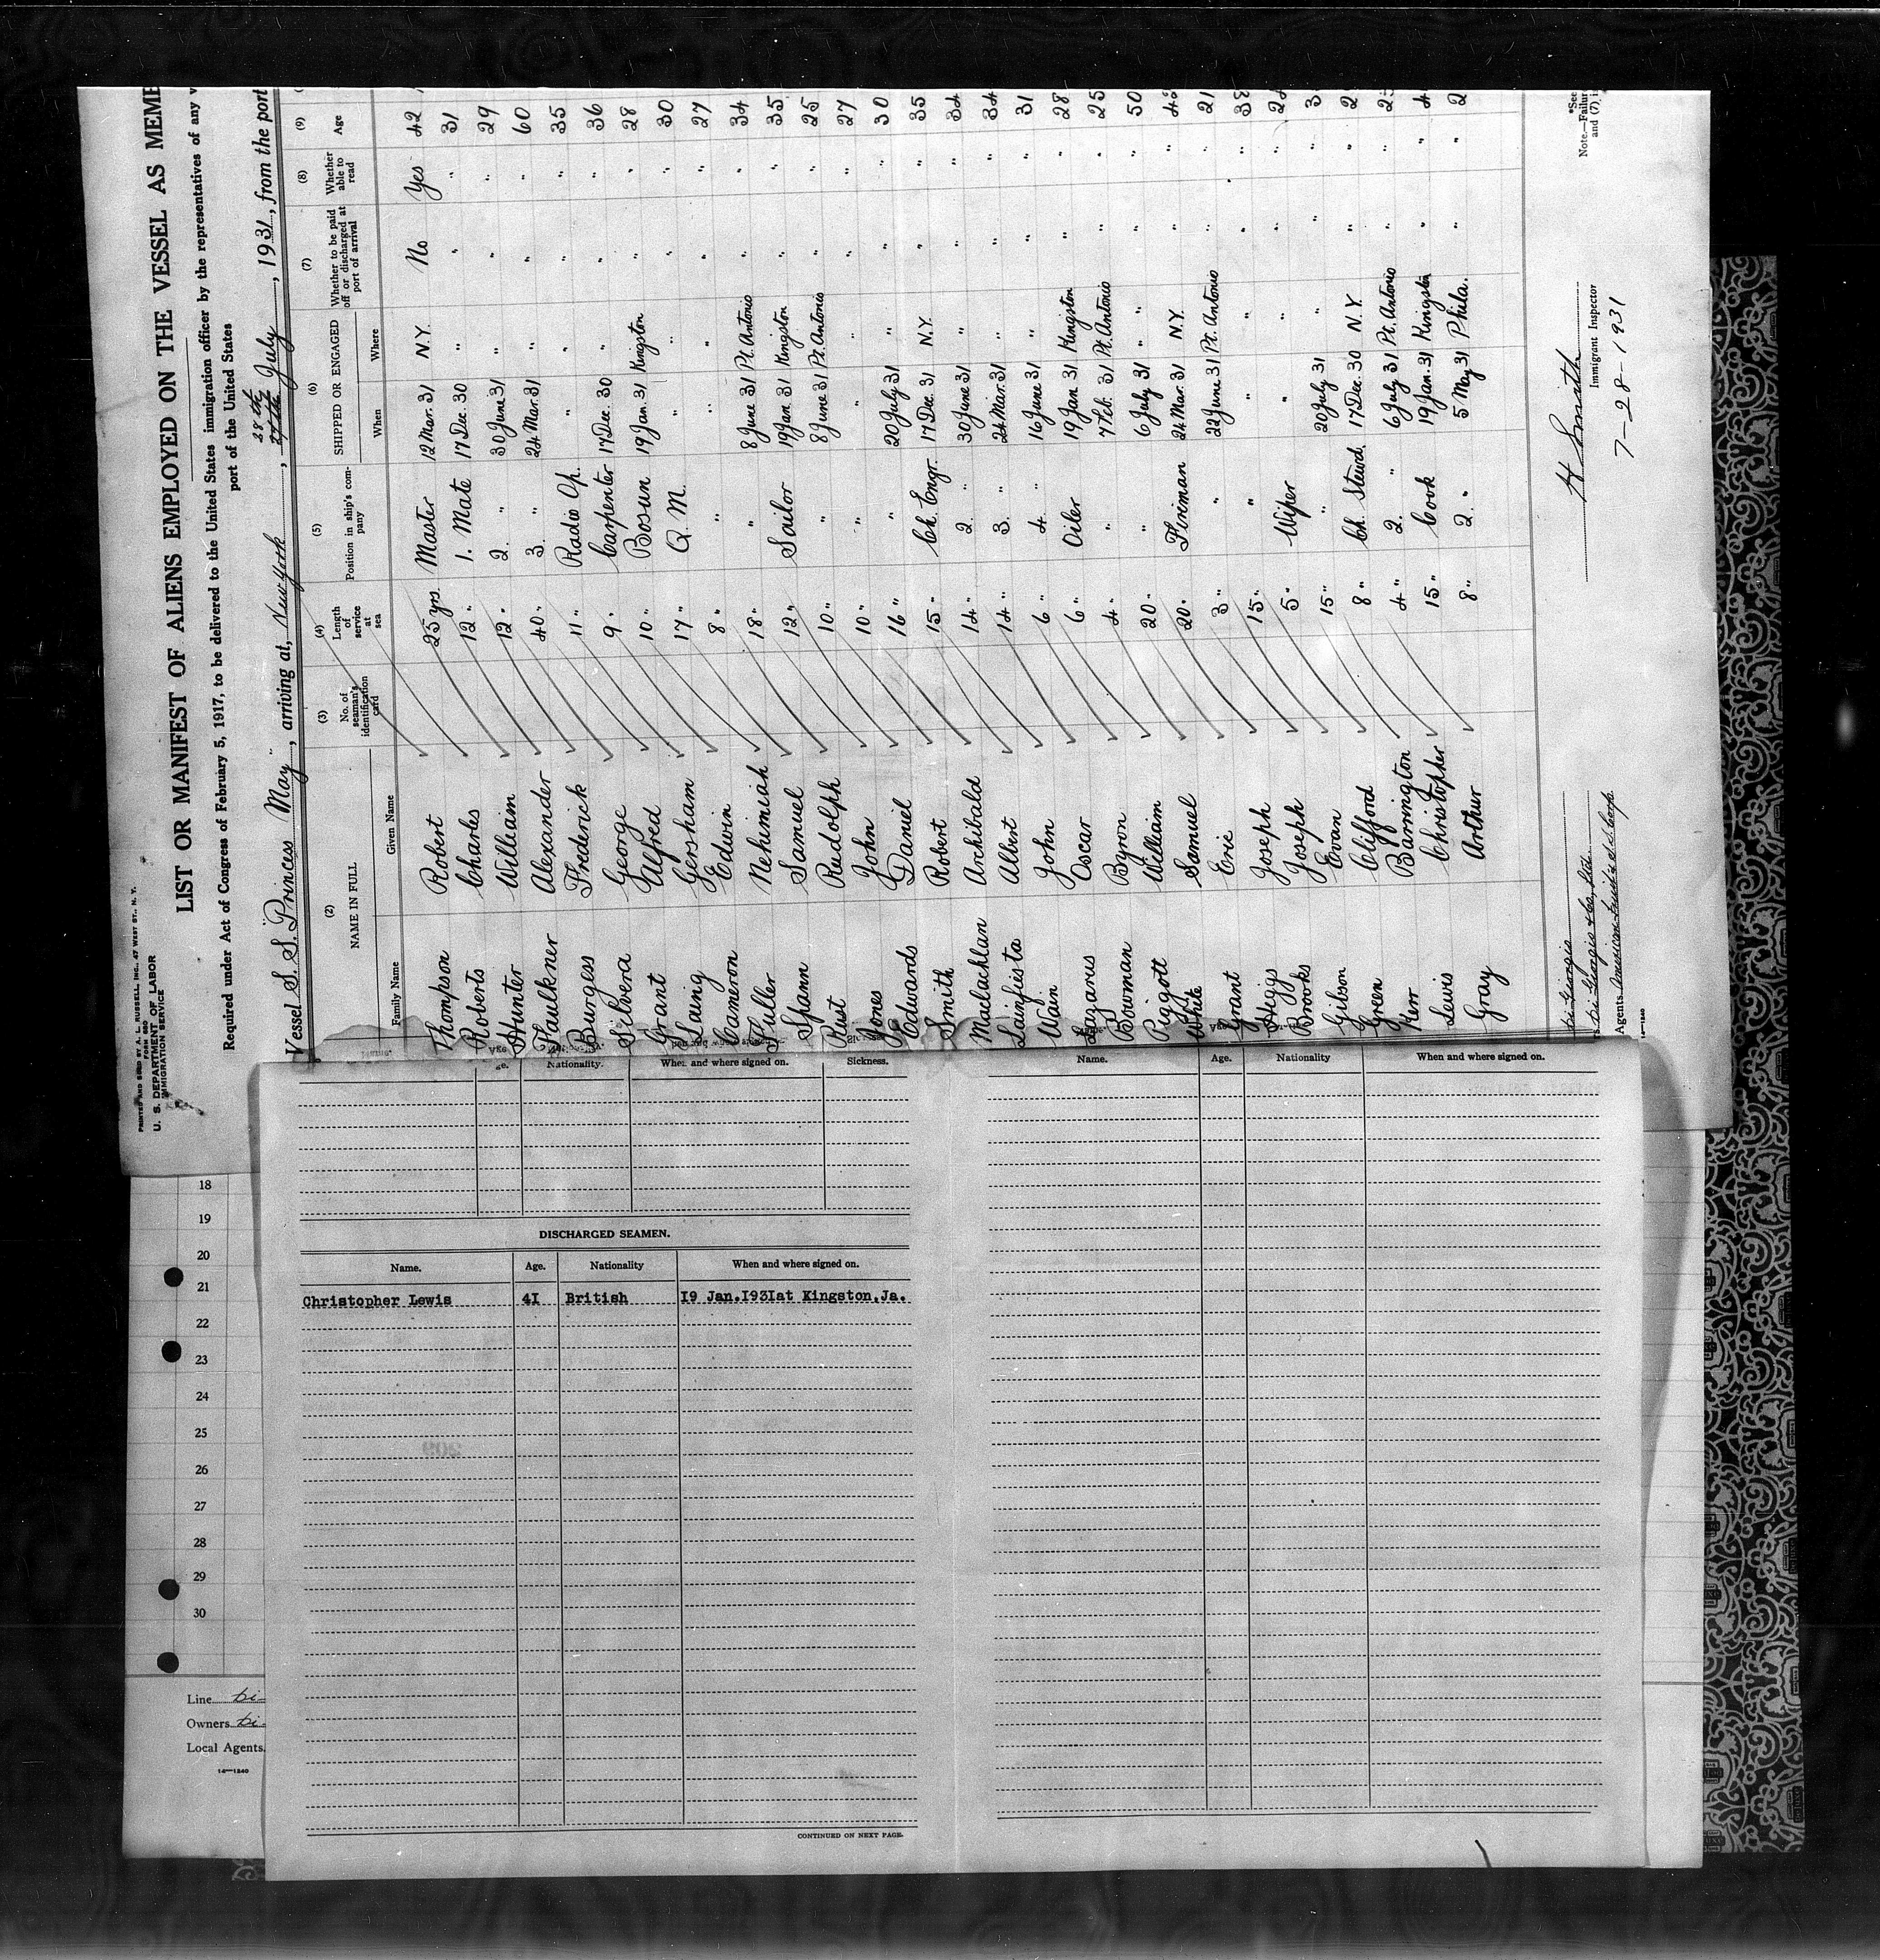 PRINTED AND SOLD BY A. L. RUSSELL, INC., 47 WEST ST., N. Y.
FORM 680
U. S. DEPARTMENT OF LABOR
IMMIGRATION SERVICE
LIST OR MANIFEST OF ALIENS EMPLOYED ON THE VESSEL AS MEMB
Required under Act of Congress of February 5, 1917, to be delivered to the United States immigration officer by the representatives of any v
port of the United States
Vessel S. S. "Princess May", arriving at, New York, 28th 27th July, 1931, from the port
(2) (3) (4) (5) (6) (7) (8) (9)
NAME IN FULL No. of seaman's identification card Length of service at sea Position in ship's company SHIPPED OR ENGAGED Whether to be paid off or discharged at port of arrival Whether able to read Age
Family Name Given Name When Where
Thompson Robert 25 yrs. Master 12 Mar. 31 N.Y. No Yes 42
Roberts Charles 12 " 1. Mate 17 Dec. 30 " " " 31
Hunter William 12 " 2. " 30 June 31 " " " 29
Faulkner Alexander 40 " 3. " 24 Mar. 31 " " " 60
Burgess Frederick 11 " Radio Op. " " " " 35
Silvera George 9 " Carpenter 17 Dec. 30 " " " 36
Grant Alfred 10 " Bosun 19 Jan. 31 Kingston " " 28
Laing Gersham 17 " Q. M. " " " " 30
Cameron Edwin 8 " " " " " " 27
Fuller Nehimiah 18 " " 8 June 31 Pt. Antonio " " 34
Spann Samuel 12 " Sailor 19 Jan 31 Kingston " " 35
Rust Rudolph 10 " " 8 June 31 Pt. Antonio " " 25
Jones John 10 " " " " " " 27
Edwards Daniel 16 " " 20 July 31 " " " 30
Smith Robert 15 " Ch. Engr. 17 Dec. 31 N.Y. " " 35
Maclachlan Archibald 14 " 2. " 30 June 31 " " " 34
Lainfiesta Albert 14 " 3. " 24 Mar. 31 " " " 34
Wain John 6 " 4. " 16 June 31 " " " 31
Lazarus Oscar 6 " Oiler 19 Jan 31 Kingston " " 28
Bowman Byron 4 " " 7 Feb. 31 Pt. Antonio " " 25
Pigott William 20 " " 6 July 31 " " " 50
White Samuel 20 " Fireman 24 Mar. 31 N.Y. " " 42
Grant Eric 3 " " 22 June 31 Pt. Antonio " " 21
Higgs Joseph 15 " " " " " " 38
Brooks Joseph 5 " Wiper " " " " 24
Gibson Evan 15 " " 20 July 31 " " " 3
Green Clifford 8 " Ch. Stewd. 17 Dec. 30 N.Y. " " 2
Kerr Barrington 4 " 2. " 6 July 31 Pt. Antonio " " 2
Lewis Christopher 15 " Cook 19 Jan. 31 Kingston " " 4
Gray Arthur 8 " 2. " 5 May 31 Phila. " " 2
di Giorgio
di Giorgio & Co., Ltd.
Agents American Fruit & S.S. Corp.
14—1240
H Smith
Immigrant Inspector
7-28-1931
*See
Note.—Failure
and (7), i
Nationality. When and where signed on. Sickness.
Name. Age. Nationality When and where signed on.
DISCHARGED SEAMEN.
Name. Age. Nationality When and where signed on.
Christopher Lewis 4I British I9 Jan.I93Iat Kingston.Ja.
CONTINUED ON NEXT PAGE.
18
19
20
21
22
23
24
25
26
27
28
29
30
Line di-
Owners di-
Local Agents
14—1240